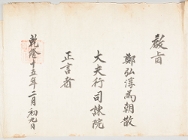 教旨
鄭弘淳爲朝散
大夫行司諫院
正言者
乾隆十五年二月初九日